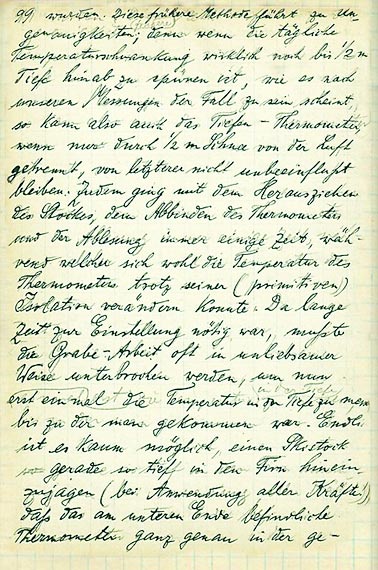 99 wurden. Diese frühere Methode führt zu Un
genauigkeiten; denn wenn die tägliche
Temperaturschwankung wirklich noch bis 1/2 m
Tiefe hinab zu spüren ist, wie es nach
unseren Messungen der Fall zu sein scheint,
so kann also auch das Tiefen-Thermometer
wenn nur durch 1/2 m Schnee von der Luft
getrennt, von letzterer nicht unbeeinflußt
bleiben. Zudem ging mit dem Herausziehen
des Stockes, dem Abbinden des Thermometers
und der Ablesung immer einige Zeit, wäh-
rend welcher sich wohl die Temperatur des
Thermometers trotz seiner (primitiven)
Isolation verändern konnte. Da lange
Zeit zur Einstellung nötig war, mußte
die Grabe-Arbeit oft in unliebsamer
Weise unterbrochen werden, um nun
erst einmal die Temperatur in der Tiefe zu messen
bis zu der man gekommen war. Endli
ist es kaum möglich, einen Skistock
gerade so tief in den Firn hinein
zujagen (bei Anwendung aller Kräfte!)
daß das am unteren Ende befindliche
Thermometer ganz genau in der ge-